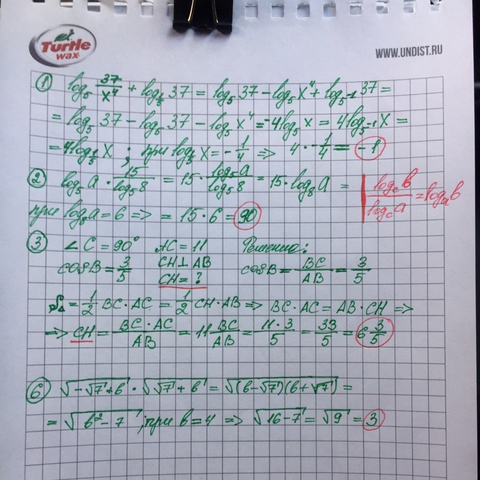 Turtle
wax
WWW.UNDIST.RU
① log₅ 37/x⁴ + log_{1/5} 37 = log₅ 37 - log₅ x⁴ + log_{5⁻¹} 37 =
= log₅ 37 - log₅ 37 - log₅ x⁴ = -4 log₅ x = 4 log_{5⁻¹} x =
= 4 log_{1/5} x ; при log_{1/5} x = -1/4 ⇒ 4 · -1/4 = -1
② log₅ a · 15/log₅ 8 = 15 · log₅ a/log₅ 8 = 15 · log₈ a = | log_c b/log_c a = log_a b
при log₈ a = 6 => = 15 · 6 = 90
③ ∠C = 90° AC = 11 Решение:
cosB = 3/5 CH ⊥ AB cosB = BC/AB = 3/5
CH = ?
S_Δ = 1/2 BC · AC = 1/2 CH · AB => BC · AC = AB · CH =>
=> CH = BC · AC/AB = 11 BC/AB = 11 · 3/5 = 33/5 = 6 3/5
⑥ √(-√7 + b) · √(√7 + b) = √((b-√7)(b+√7)) =
= √(b² - 7) , при b = 4 => √(16-7) = √9 = 3